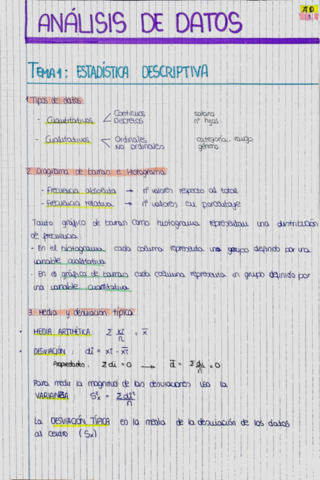 AD
1
ANÁLISIS DE DATOS
TEMA 1: ESTADÍSTICA DESCRIPTIVA
1. Tipos de datos
- Cuantitativos < Continuos → salario
Discretos → nº hijos
- Cualitativos < Ordinales → categoría, rango
No ordinales → género
2. Diagrama de barras e Histograma
- Frecuencia absoluta → nº valores respecto al total
- Frecuencia relativa → nº valores en porcentaje
Tanto gráfico de barras como histograma representan una distribución
de frecuencia
- En el histograma cada columna representa un grupo definido por una
variable cualitativa
- En el gráfico de barras cada columna representa un grupo definido por
una variable cuantitativa
3. Media y desviación típica
• MEDIA ARITMÉTICA: Σ xi/n = x̄
• DESVIACIÓN: di = xi - x̄
Propiedades: Σdi = 0 → d̄ = Σdi/n = 0
Para medir la magnitud de las desviaciones usa la
VARIANZA S²x = Σdi²/n
La DESVIACIÓN TÍPICA es la media de la desviación de los datos
al centro (Sx)